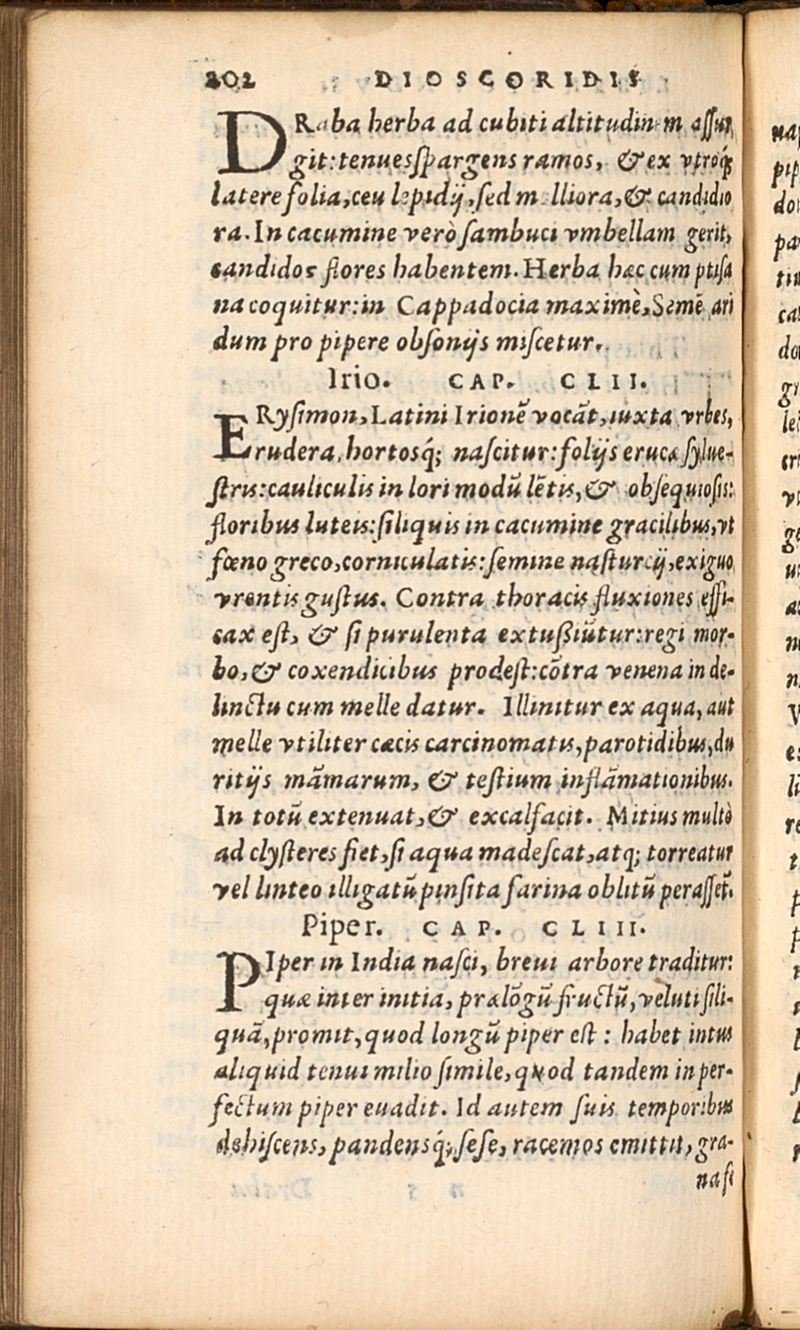 202 DIOSCORIDIS
DRaba herba ad cubiti altitudinem assur
git: tenues spargens ramos, & ex vtroq;
latere folia, ceu lepidij, sed molliora, & candidio
ra. In cacumine verò sambuci vmbellam gerit,
candidos flores habentem. Herba hæc cum ptisa
na coquitur: in Cappadocia maximè, Semẽ ari
dum pro pipere obsonijs miscetur.
Irio. CAP. CLII.
ERysimon, Latini Irionẽ vocãt, iuxta vrbes,
rudera, hortosq́; nascitur: folijs erucæ sylue-
stris: cauliculis in lori modũ lẽtis, & obsequiosis:
floribus luteis: siliquis in cacumine gracilibus, vt
fœno greco, corniculatis: semine nasturcij, exiguo
vrentis gustus. Contra thoracis fluxiones effi-
cax est, & si purulenta extussiũtur: regi mor-
bo, & coxendicibus prodest: cõtra venena in de-
linctu cum melle datur. Illinitur ex aqua, aut
melle vtiliter cæcis carcinomatis, parotidibus, du
ritijs mãmarum, & testium inflãmationibus.
In totũ extenuat, & excalfacit. Mitius multò
ad clysteres fiet, si aqua madescat, atq; torreatur
vel linteo illigatũ pinsita farina oblitũ perassetr̃.
Piper. CAP. CLIII.
PIper in India nasci, breui arbore traditur:
quæ inter initia, prælõgũ fructũ, veluti sili-
quã, promit, quod longũ piper est: habet intus
aliquid tenui milio simile, quod tandem in per-
fectum piper euadit. Id autem suis temporibus
dehiscens, pandensq́; sese, racemos emittit, gra-
nasi